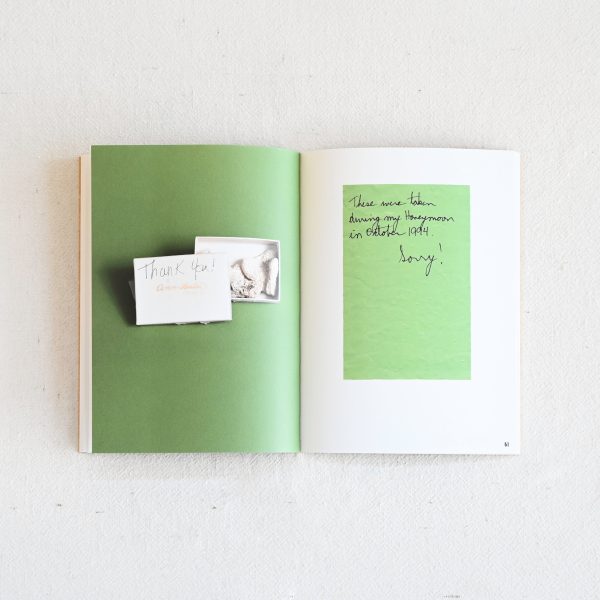 Thank You!
These were taken
during my Honeymoon
in October 1994.
Sorry!
61